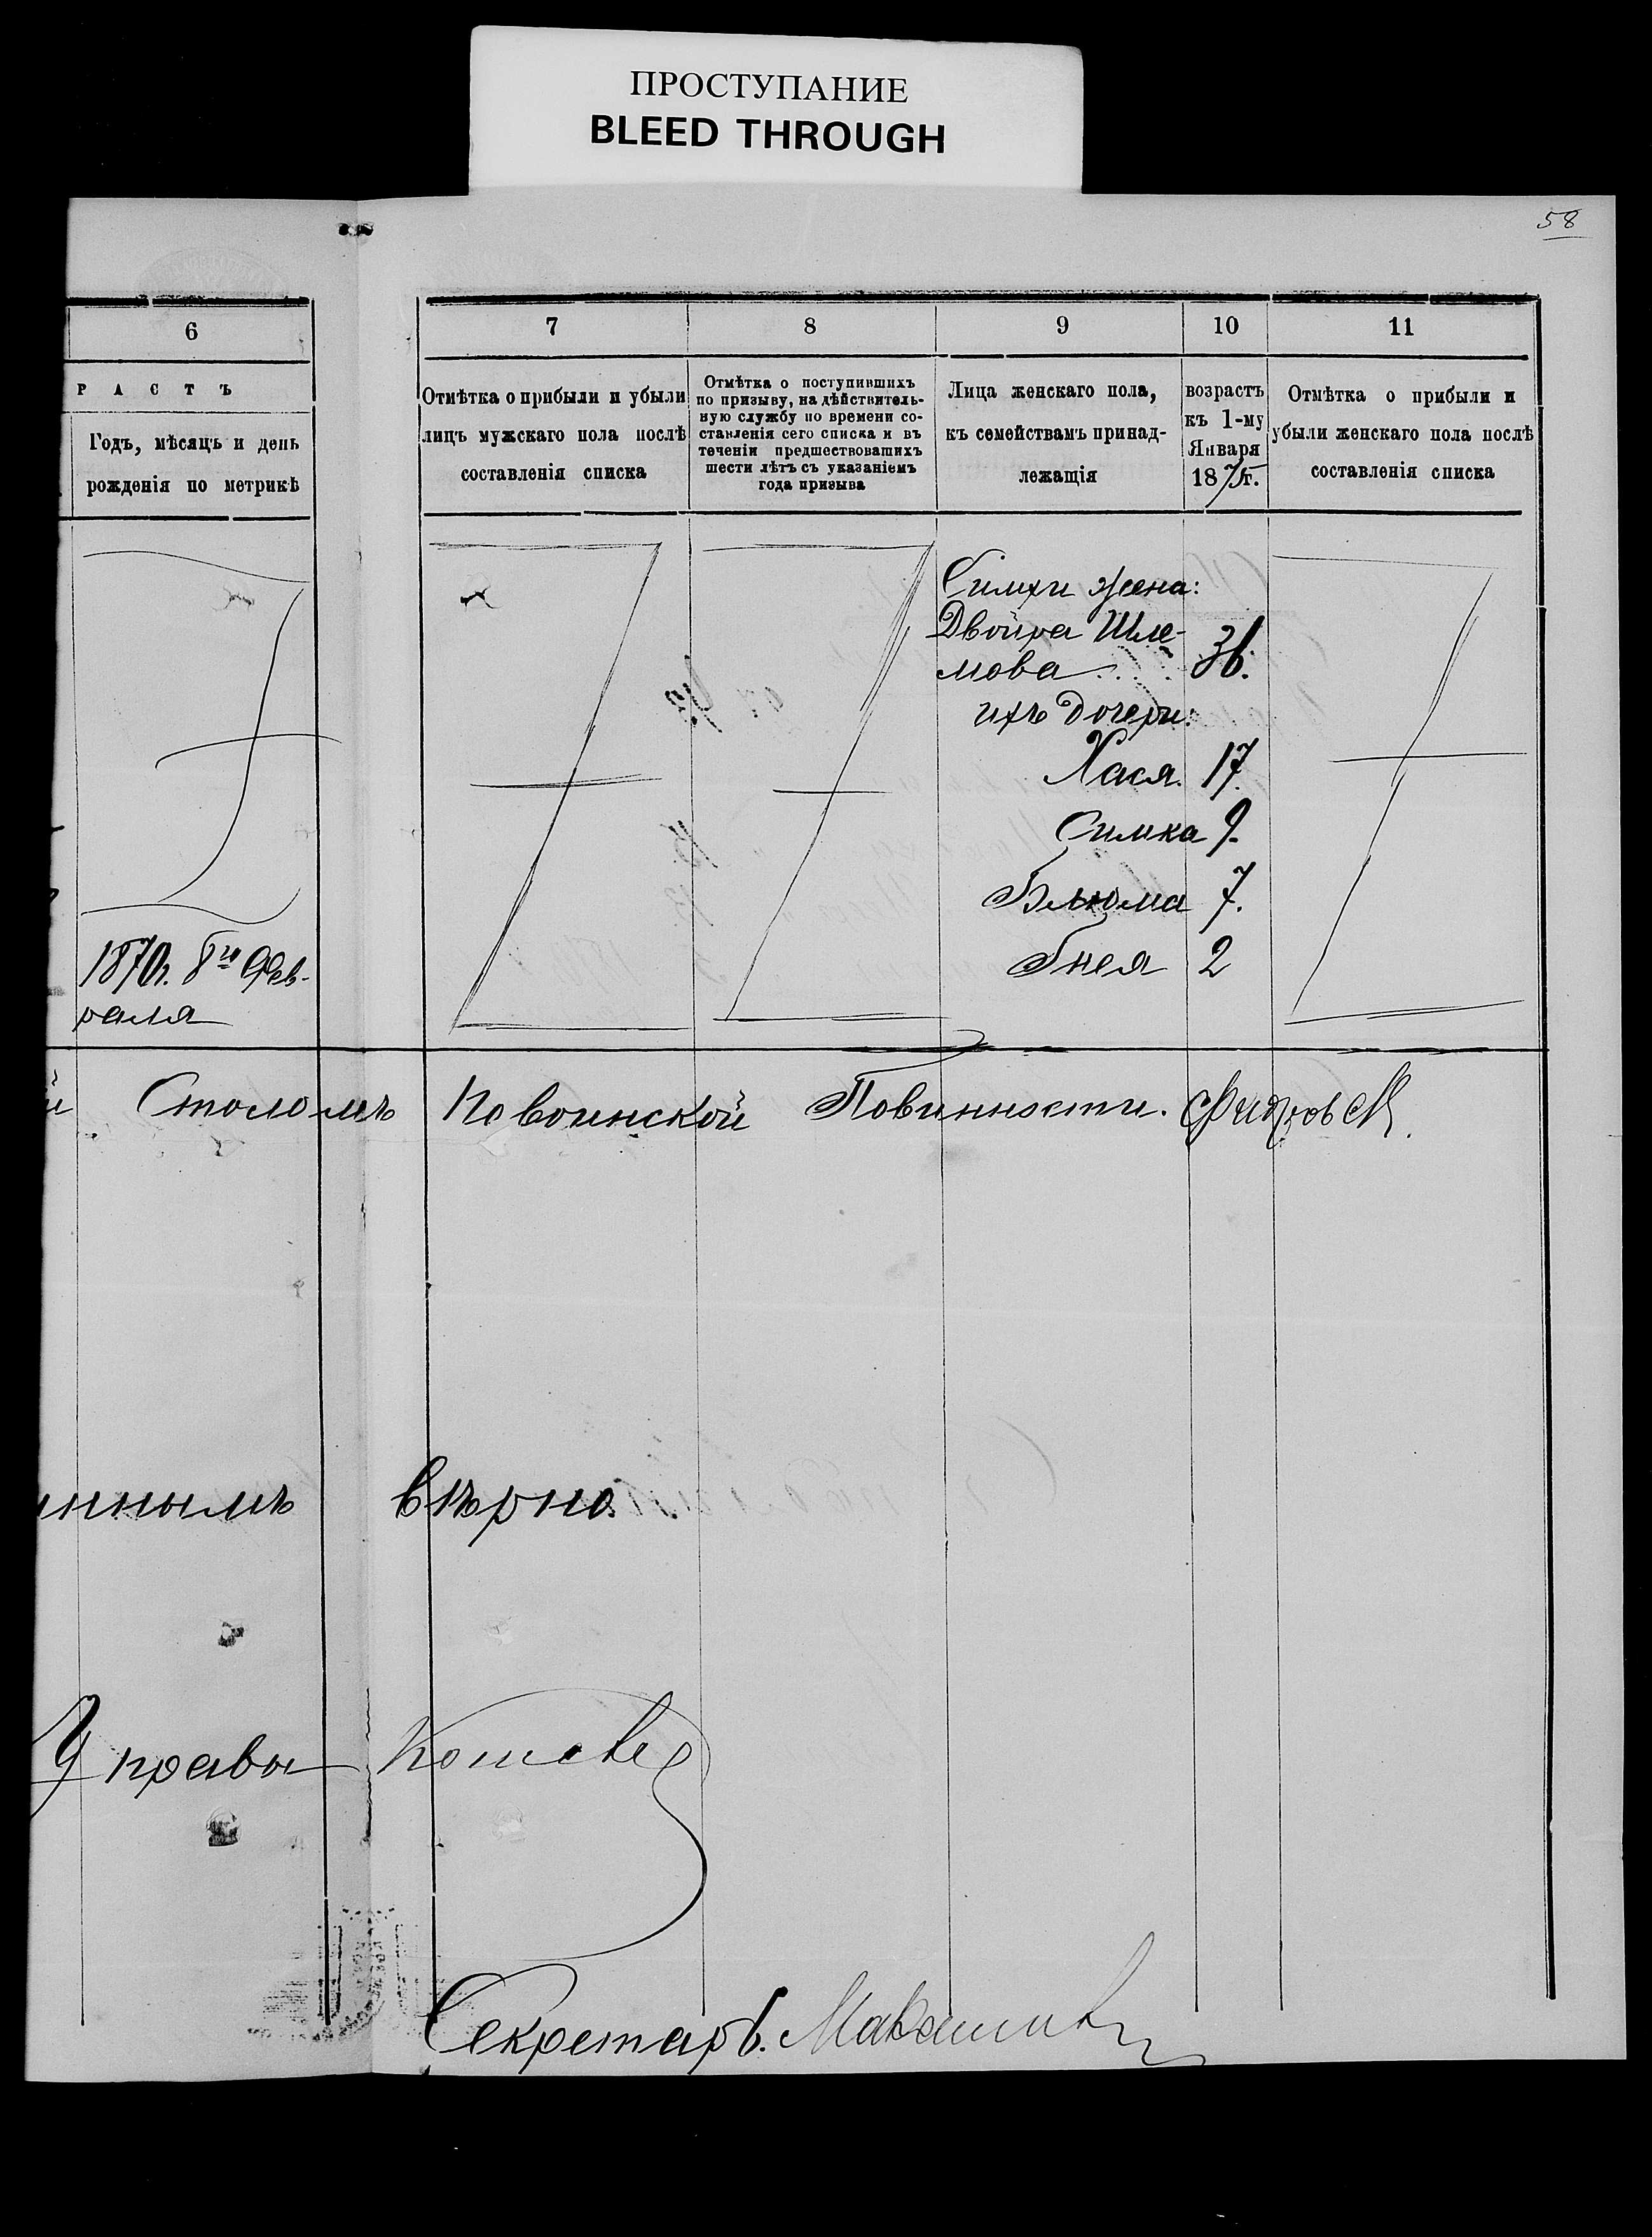 ПРОСТУПАНИЕ
BLEED THROUGH
58
6
7
8
9
10
11
Р А С Т Ъ
Годъ, мѣсяцъ и день
рожденія по метрикѣ
Отмѣтка о прибыли и убыли
лицъ мужскаго пола послѣ
составленія списка
Отмѣтка о поступившихъ
по призыву, на дѣйствитель-
ную службу по времени со-
ставленія сего списка и въ
теченіи предшествовавшихъ
шести лѣтъ съ указаніемъ
года призыва
Лица женскаго пола,
къ семействамъ принад-
лежащія
возрастъ
къ 1-му
Января
1875г.
Отмѣтка о прибыли и
убыли женскаго пола послѣ
составленія списка
Симхи жена:
Двойра Шле-
мова 36.
ихъ дочери:
Хася. 17.
Симка 9.
Блюма 7.
Гнея 2
1870г. 8го Фев-
раля
Столомъ по воинской Повинности.
вѣрно.
Управы
Секретарь.